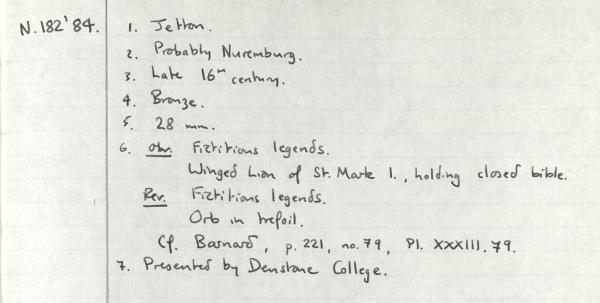 N.182'84. 1. Jetton.
2. Probably Nuremburg.
3. Late 16th century.
4. Bronze.
5. 28 mm.
6. Obv. Fictitious legends.
Winged Lion of St. Mark l., holding closed bible.
Rev. Fictitious legends.
Orb in trefoil.
Cf. Barnard, p. 221, no. 79, Pl. XXXIII. 79.
7. Presented by Denstone College.